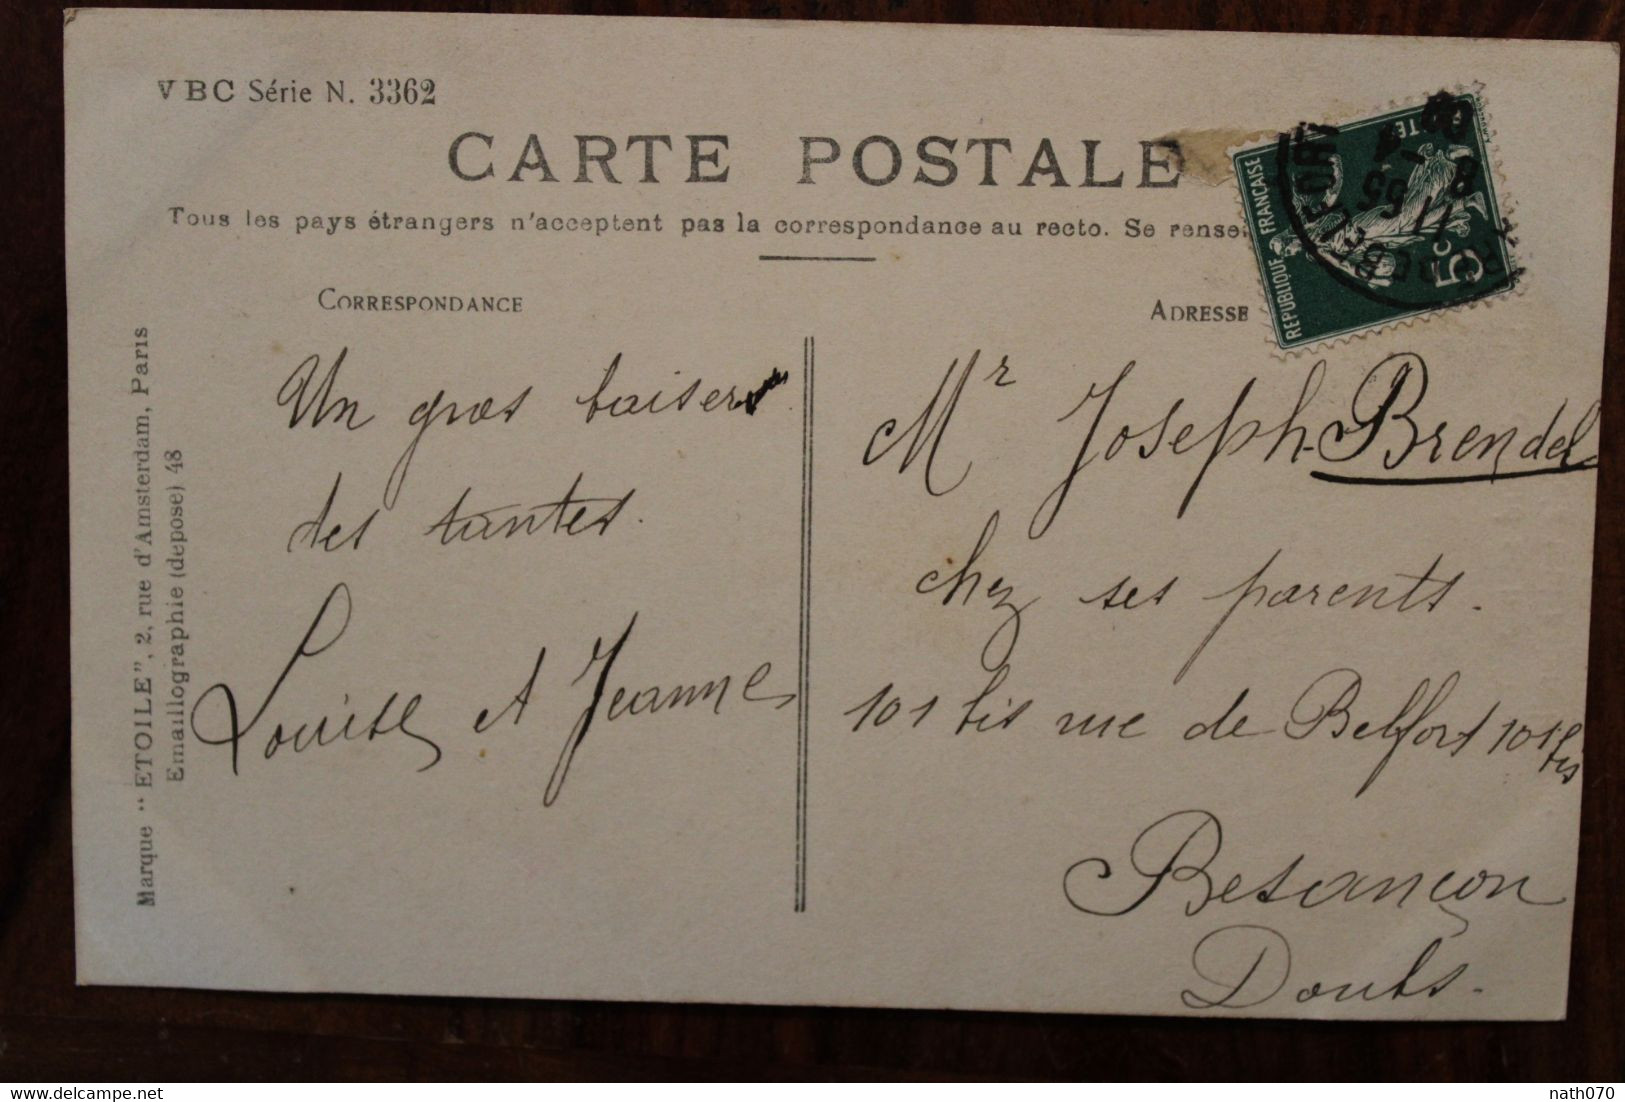 VBC Série N. 3362
CARTE POSTALE
Tous les pays étrangers n'acceptent pas la correspondance au recto. Se rensei
CORRESPONDANCE
ADRESSE
REPUBLIQUE FRANÇAISE
5c
11 55
8 - 4
Un gros baiser
des tantes.
Louise et Jeanne
Mr Joseph Brendel
chez ses parents.
101 bis rue de Belfort 101 bis
Besançon
Doubs.
Marque "ETOILE", 2, rue d'Amsterdam, Paris
Emaillographie (depose) 48
nath070